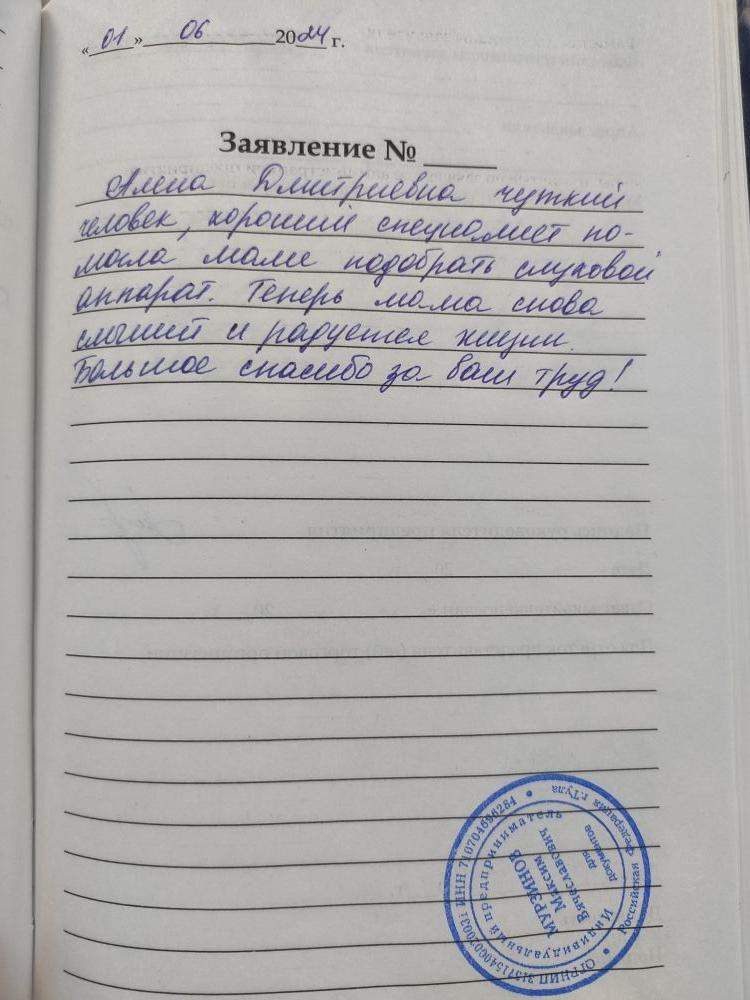 «01» 06 2024 г.
Заявление № ____
Алена Дмитриевна чуткий
человек, хороший специалист по-
могла маме подобрать слуховой
аппарат. Теперь мама снова
слышит и радуется жизни.
Большое спасибо за ваш труд!
Российская Федерация г.Тула
Индивидуальный предприниматель
МУРЗИНОВ
Максим
Вячеславович
для
документов